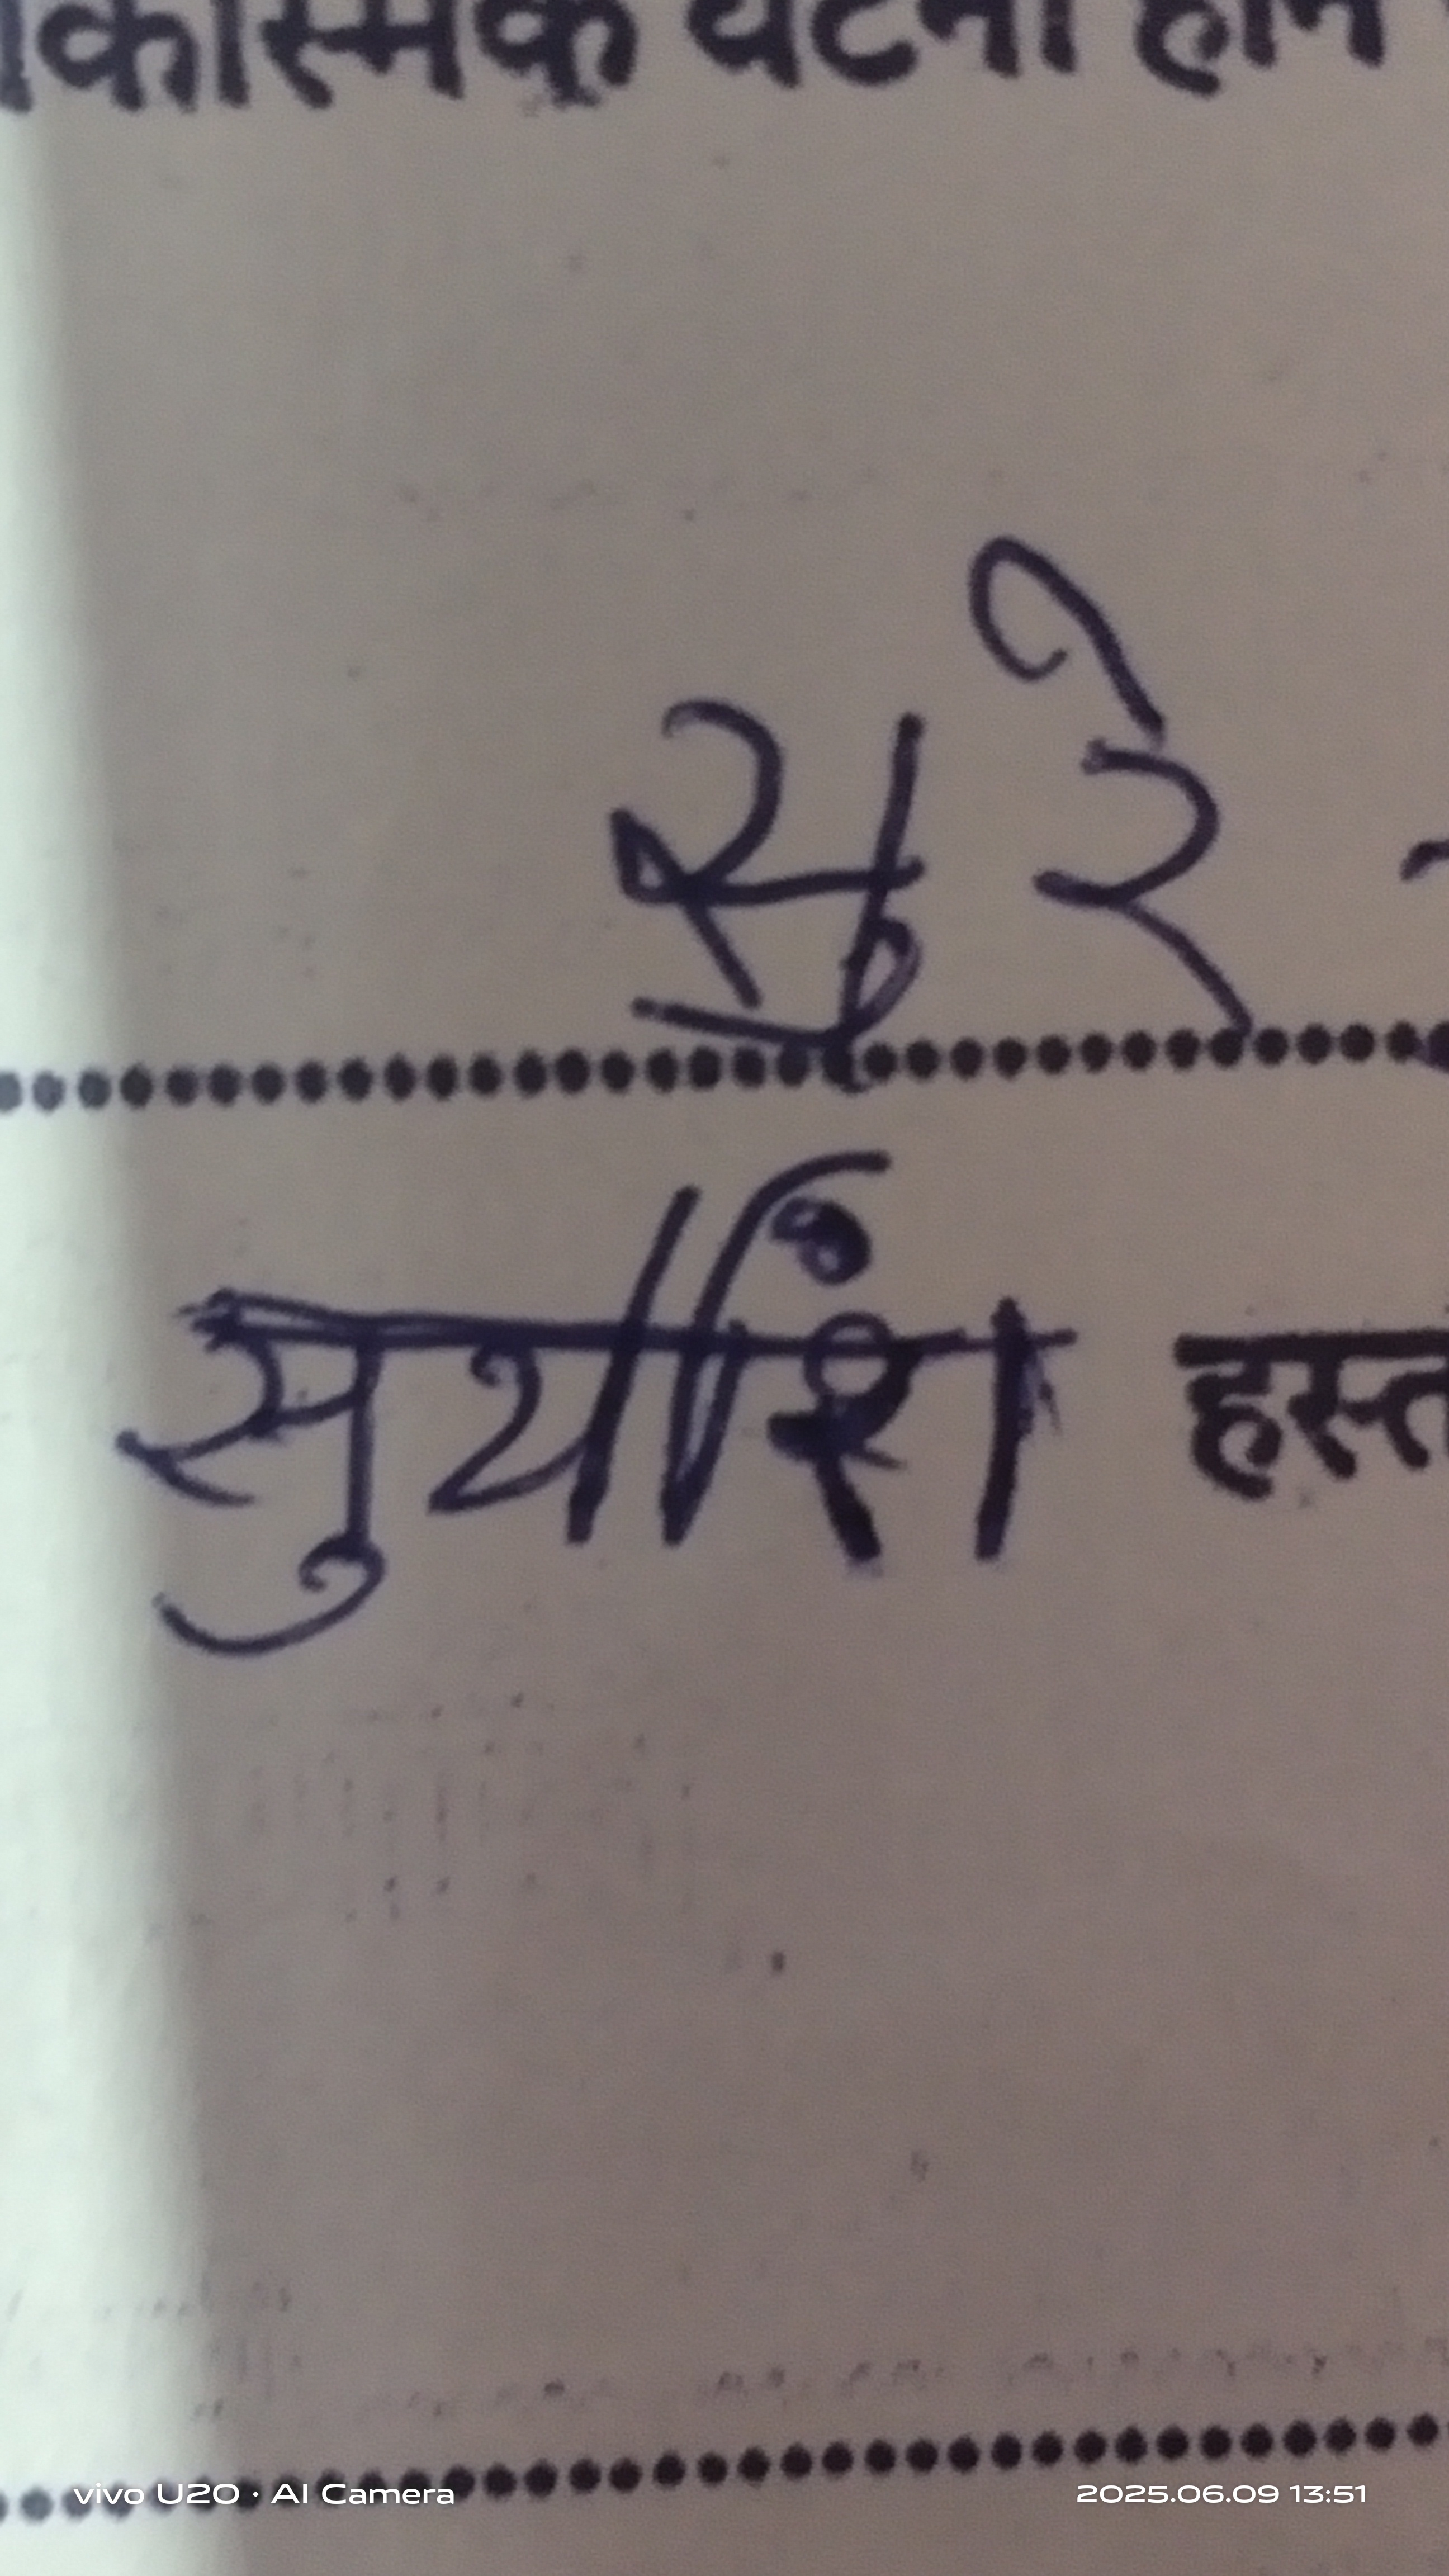 कस्मिक घटना होन
सुरे
सुयांश हस्त
vivo U20 · AI Camera 2025.06.09 13:51